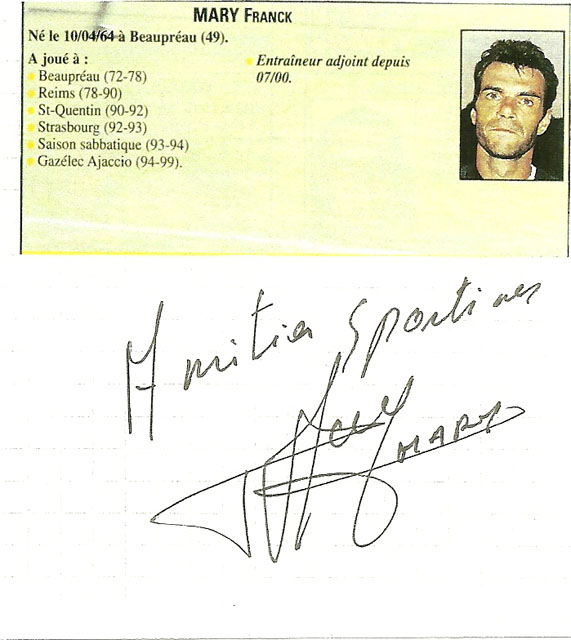 MARY FRANCK
Né le 10/04/64 à Beaupréau (49).
A joué à :
Beaupréau (72-78)
Reims (78-90)
St-Quentin (90-92)
Strasbourg (92-93)
Saison sabbatique (93-94)
Gazélec Ajaccio (94-99).
Entraîneur adjoint depuis
07/00.
Amitiés Sportives
MARY